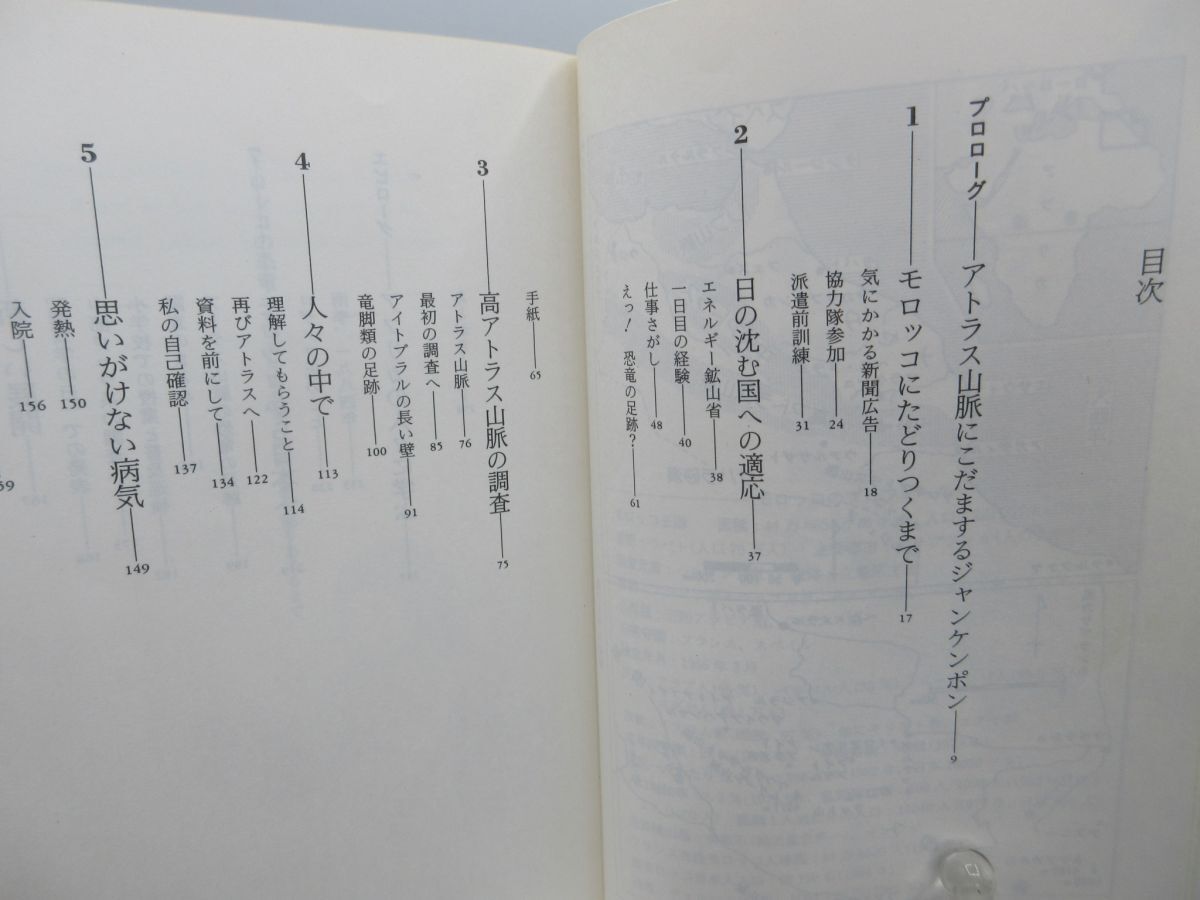 目次
プロローグ――アトラス山脈にこだまするジャンケンポン――9
1――モロッコにたどりつくまで――17
気にかかる新聞広告――18
協力隊参加――24
派遣前訓練――31
2――日の沈む国への適応――37
エネルギー鉱山省――38
一日目の経験――40
仕事さがし――48
えっ！ 恐竜の足跡？――61
手紙――65
3――高アトラス山脈の調査――75
アトラス山脈――76
最初の調査へ――85
アイトブラルの長い壁――91
竜脚類の足跡――100
4――人々の中で――113
理解してもらうこと――114
再びアトラスへ――122
資料を前にして――134
私の自己確認――137
5――思いがけない病気――149
発熱――150
入院――156